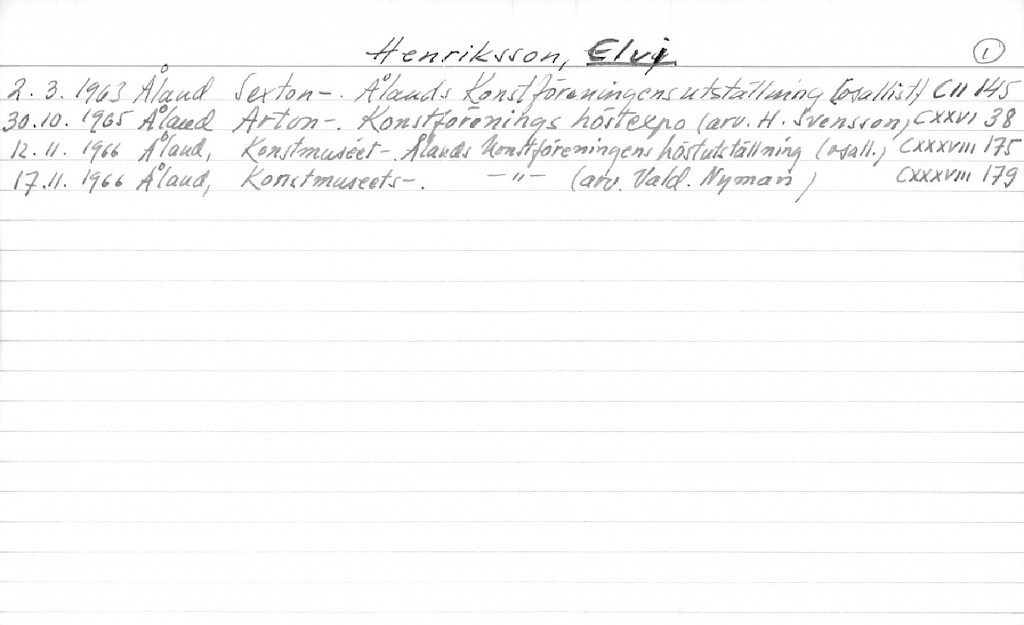 Henriksson, Elvi ①
2. 3. 1963 Åland Sexton-. Ålands Konstföreningens utställning (osallist) CII 145
30.10. 1965 Åland Arton-. Konstförenings höstexpo (arv. H. Svensson) CXXVI 38
12. 11. 1966 Åland, Konstmuséet-. Ålands Konstföreningens höstutställning (osall.) CXXXVIII 175
17.11. 1966 Åland, Konstmuseets-. -"- (arv. Vald. Nyman) CXXXVIII 179